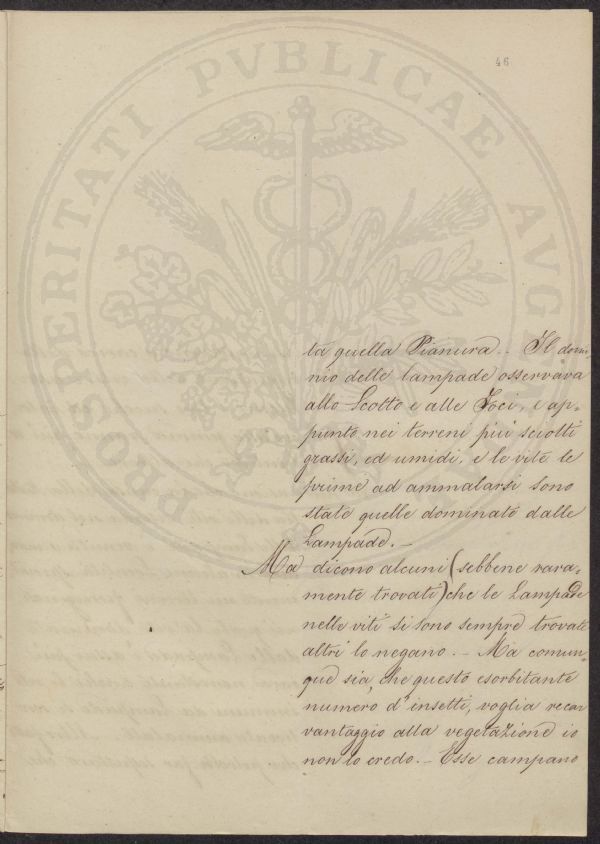 46
PROSPERITATI PVBLICAE AVGENDAE
ta quella Pianura.. Il domi
nio delle lampade osservava
allo Scolto e alle Foci, e ap=
punto nei terreni più sciolti
grassi, ed umidi, e le vite le
prime ad ammalarsi sono
state quelle dominate dalle
Lampade. _
Ma dicono alcuni (sebbene rara=
mente trovati) che le Lampade
nelle viti si sono sempre trovate
altri lo negano. _ Ma comun=
que sia, che questo esorbitante
numero d'insetti, voglia recar
vantaggio alla vegetazione io
non lo credo. _ Esse campano